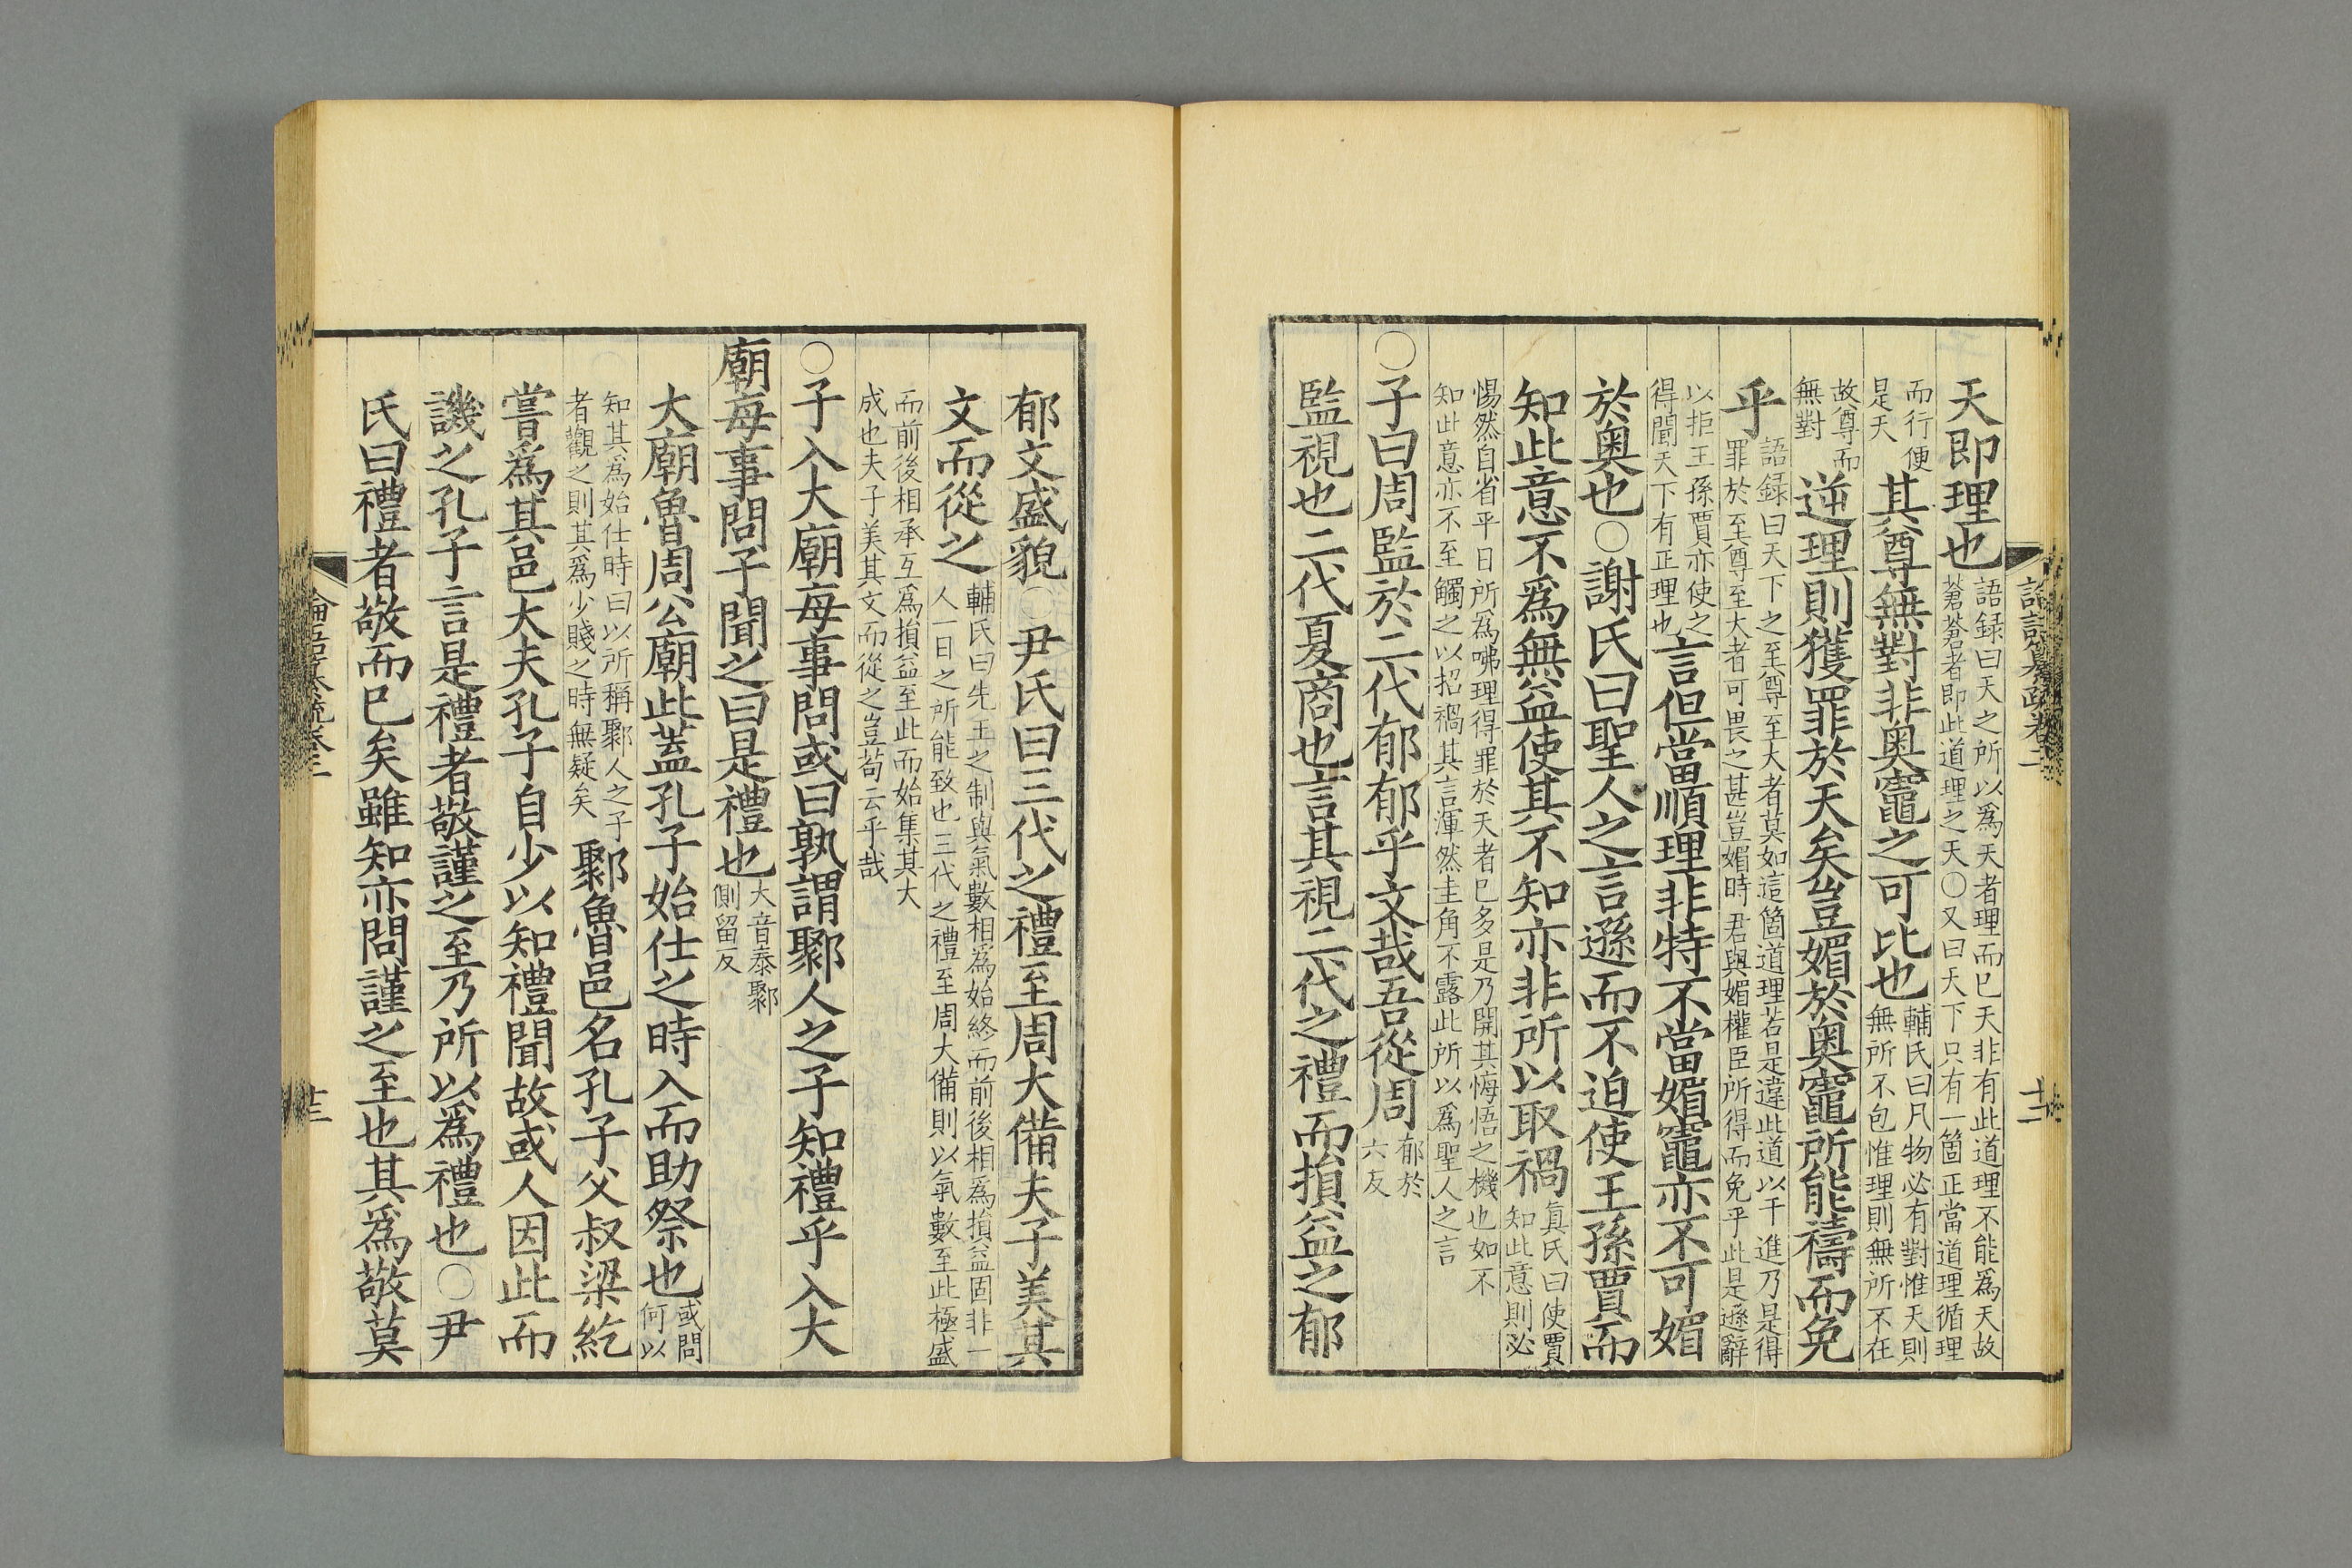 天即理也語録曰天之所以爲天者理而已天非有此道理不能爲天故
蒼蒼者即此道理之天〇又曰天下只有一箇正當道理循理
而行便
是天其尊無對非奥竈之可比也輔氏曰凡物必有對惟天則
無所不包惟理則無所不在
故尊而
無對逆理則獲罪於天矣豈媚於奥竈所能禱而免
乎語録曰天下之至尊至大者莫如這箇道理若是違此道以干進乃是得
罪於至尊至大者可畏之甚豈媚時君與媚權臣所得而免乎此是遜辭
以拒王孫賈亦使之
得聞天下有正理也言但當順理非特不當媚竈亦不可媚
於奥也〇謝氏曰聖人之言遜而不迫使王孫賈而
知此意不爲無益使其不知亦非所以取禍真氏曰使賈
知此意則必
惕然自省平日所爲咈理得罪於天者已多是乃開其悔悟之機也如不
知此意亦不至觸之以招禍其言渾然圭角不露此所以爲聖人之言
〇子曰周監於二代郁郁乎文哉吾從周郁於
六反
監視也二代夏商也言其視二代之禮而損益之郁
郁文盛貌〇尹氏曰三代之禮至周大備夫子美其
文而從之輔氏曰先王之制與氣數相爲始終而前後相爲損益固非一
人一日之所能致也三代之禮至周大備則以氣數至此極盛
而前後相承互爲損益至此而始集其大
成也夫子美其文而從之豈苟云乎哉
〇子入大廟每事問或曰孰謂鄹人之子知禮乎入大
廟每事問子聞之曰是禮也大音泰鄹
側留反
大廟魯周公廟此蓋孔子始仕之時入而助祭也或問
何以
知其爲始仕時曰以所稱鄹人之子
者觀之則其爲少賤之時無疑矣鄹魯邑名孔子父叔梁紇
嘗爲其邑大夫孔子自少以知禮聞故或人因此而
譏之孔子言是禮者敬謹之至乃所以爲禮也〇尹
氏曰禮者敬而已矣雖知亦問謹之至也其爲敬莫